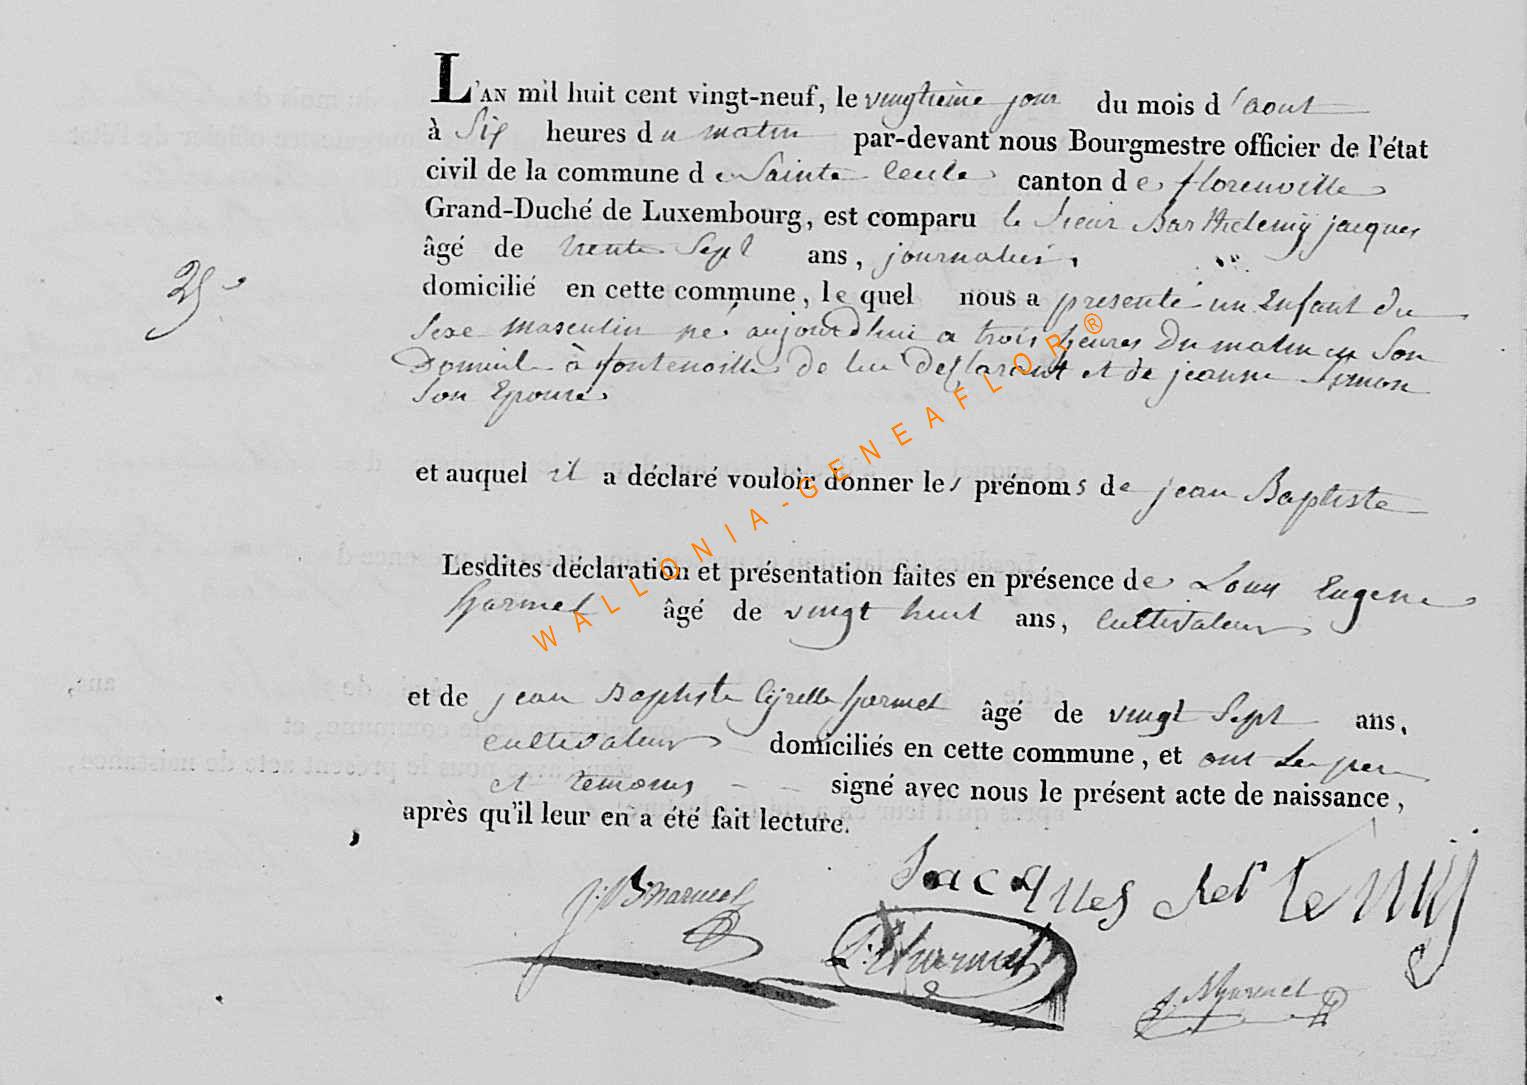 L'AN mil huit cent vingt-neuf, le vingtième jour du mois d'aout
à Six heures du matin par-devant nous Bourgmestre officier de l'état
civil de la commune de Sainte Cecile canton de florenville
Grand-Duché de Luxembourg, est comparu le Sieur Barthelemÿ jacques
âgé de trente Sept ans, journalier,
domicilié en cette commune, lequel nous a presenté un Enfant du
25e
Sexe masculin né aujourd'hui a trois heures Du matin en Son
Domicile à fontenoille de lui Déclarant et de jeanne Simon
Son Epouse
et auquel il a déclaré vouloir donner les prénoms de jean Baptiste
Lesdites déclaration et présentation faites en présence de Louis Eugene
harmel âgé de vingt huit ans, cultivateur
et de jean Baptiste Cyrille harmel âgé de vingt Sept ans,
cultivateur domiciliés en cette commune, et ont Le pere
et temoins signé avec nous le présent acte de naissance,
après qu'il leur en a été fait lecture.
Jacques
J. B harmel
harmel
WALLONIA-GENEAFLOR®